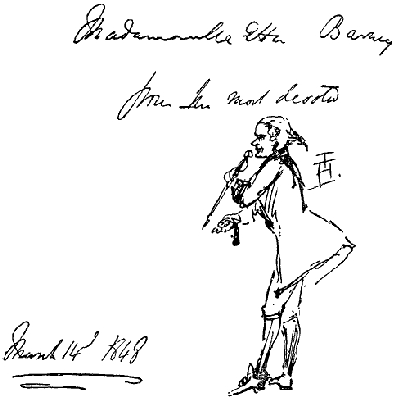 Mademoiselle Etta Barney
from his most devoted
March 14th 1848